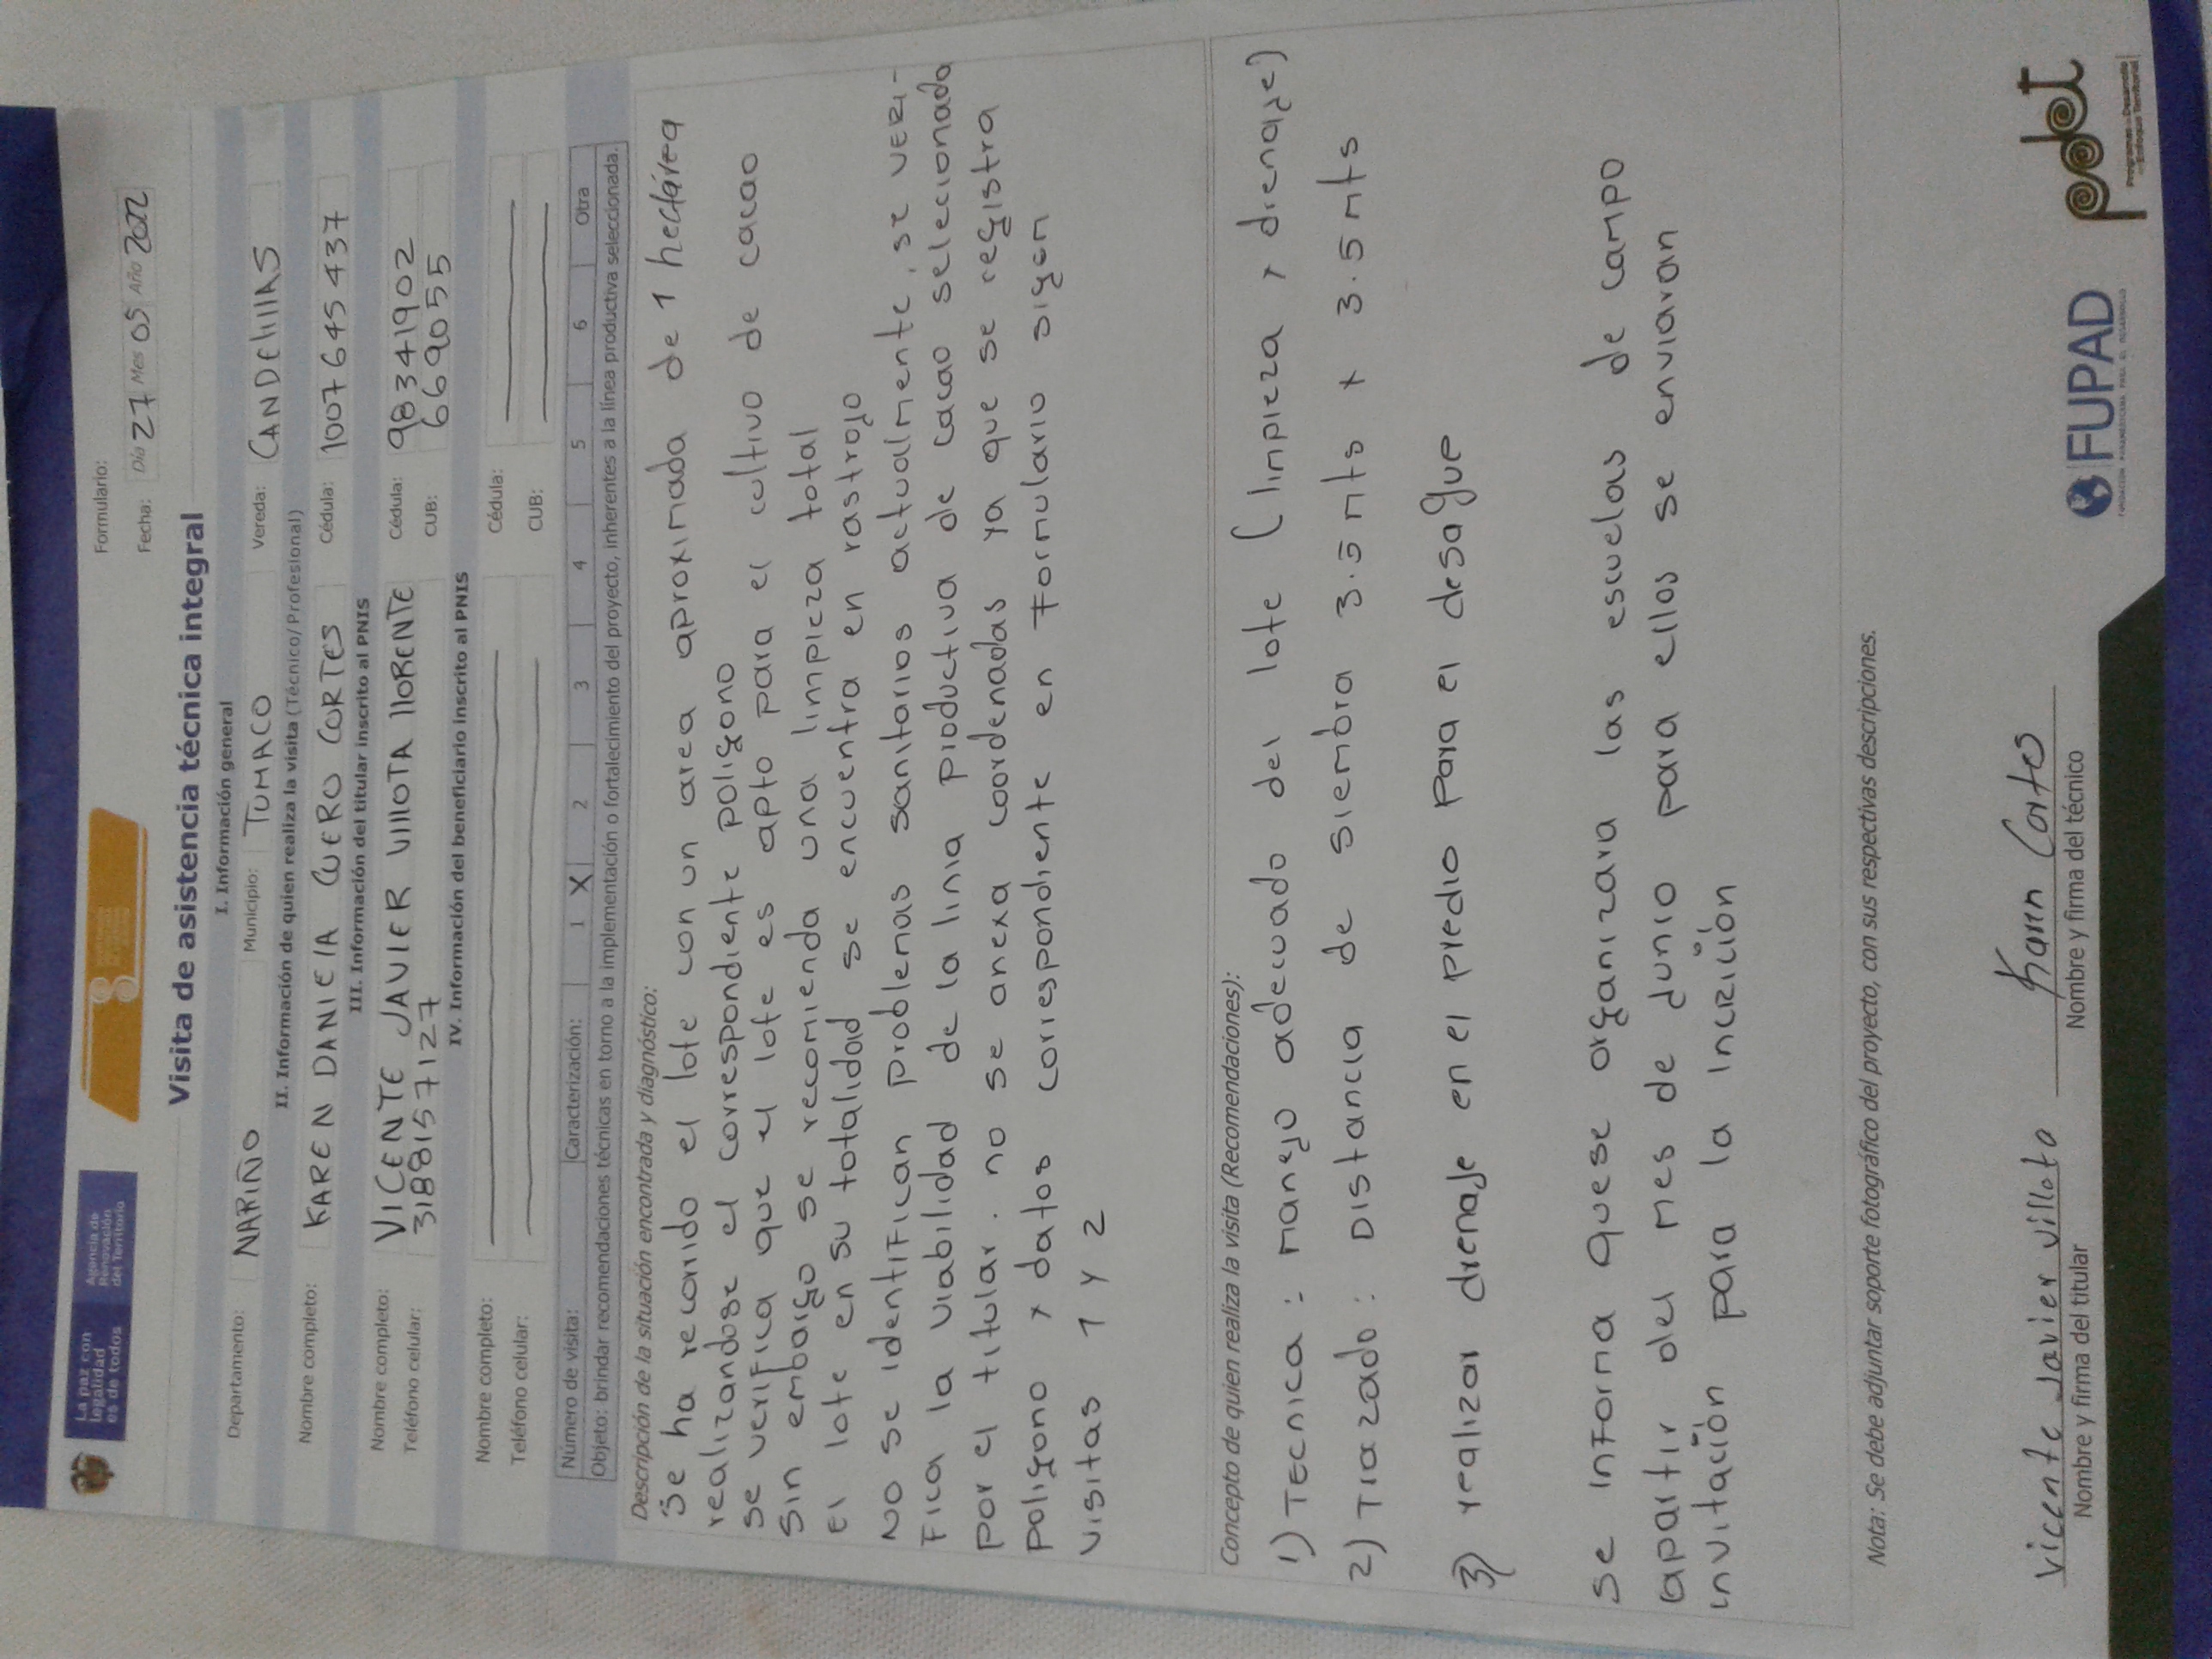 La paz con
legalidad
es de todos
Agencia de
Renovación
del Territorio
Formulario:
Fecha: Día 27 Mes 05 Año 2022
Visita de asistencia técnica integral
I. Información general
Departamento: NARIÑO Municipio: TUMACO Vereda: CANDElIllAS
II. Información de quien realiza la visita (Técnico/Profesional)
Nombre completo: KAREN DANIElA CUERO CORTES Cédula: 1007645437
III. Información del titular inscrito al PNIS
Nombre completo: VICENTE JAVIER VIllOTA llORENTE Cédula: 98341902
Teléfono celular: 3188157127 CUB: 669055
IV. Información del beneficiario inscrito al PNIS
Nombre completo: Cédula:
Teléfono celular: CUB:
Número de visita: Caracterización: 1 X 2 3 4 5 6 Otra
Objeto: brindar recomendaciones técnicas en torno a la implementación o fortalecimiento del proyecto, inherentes a la línea productiva seleccionada.
Descripción de la situación encontrada y diagnóstico:
Se ha recorrido el lote con un area aproximada de 1 hectárea
realizandose el correspondiente poligono
se verifica que el lote es apto para el cultivo de cacao
sin embargo se recomienda una limpieza total
el lote en su totalidad se encuentra en rastrojo
No se identifican problemas sanitarios actualmente, se veri-
fica la viabilidad de la linia productiva de cacao seleccionada
por el titular. no se anexa coordenadas ya que se registra
poligono y datos correspondiente en formulario sigem
visitas 1 y 2
Concepto de quien realiza la visita (Recomendaciones):
1) Tecnica: manejo adecuado del lote (limpieza y drenaje)
2) Trazado: Distancia de siembra 3.5 mts x 3.5 mts
3) realizar drenaje en el predio para el desague
se informa quese organizara las escuelas de campo
apartir del mes de Junio para ellos se enviaran
invitación para la incrición
Nota: Se debe adjuntar soporte fotográfico del proyecto, con sus respectivas descripciones.
Vicente Javier villota
Nombre y firma del titular
Karen Cortes
Nombre y firma del técnico
FUPAD
FUNDACIÓN PANAMERICANA PARA EL DESARROLLO
pdet
Programas de Desarrollo
con Enfoque Territorial